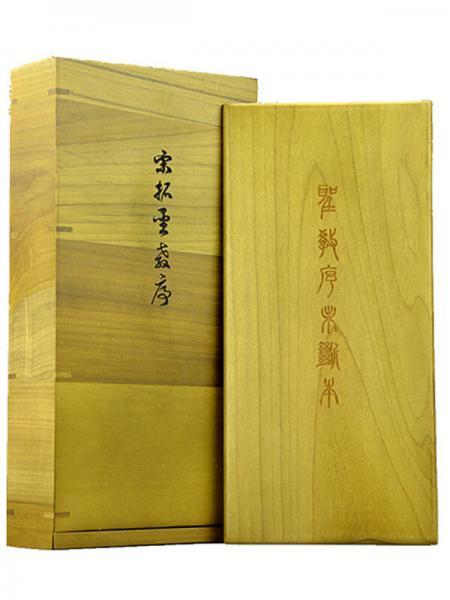 宋拓圣教序
聖教序未斷本